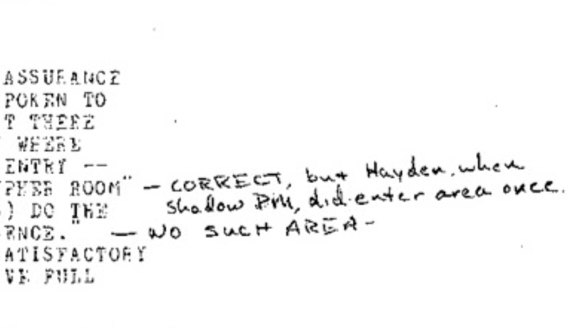 ASSURANCE
POKEN TO
T THERE
WHERE
ENTRY --
PHER ROOM" — CORRECT, but Hayden, when
) DO THE shadow PM, did enter area once.
ENCE." — NO SUCH AREA —
ATISFACTORY
VE FULL